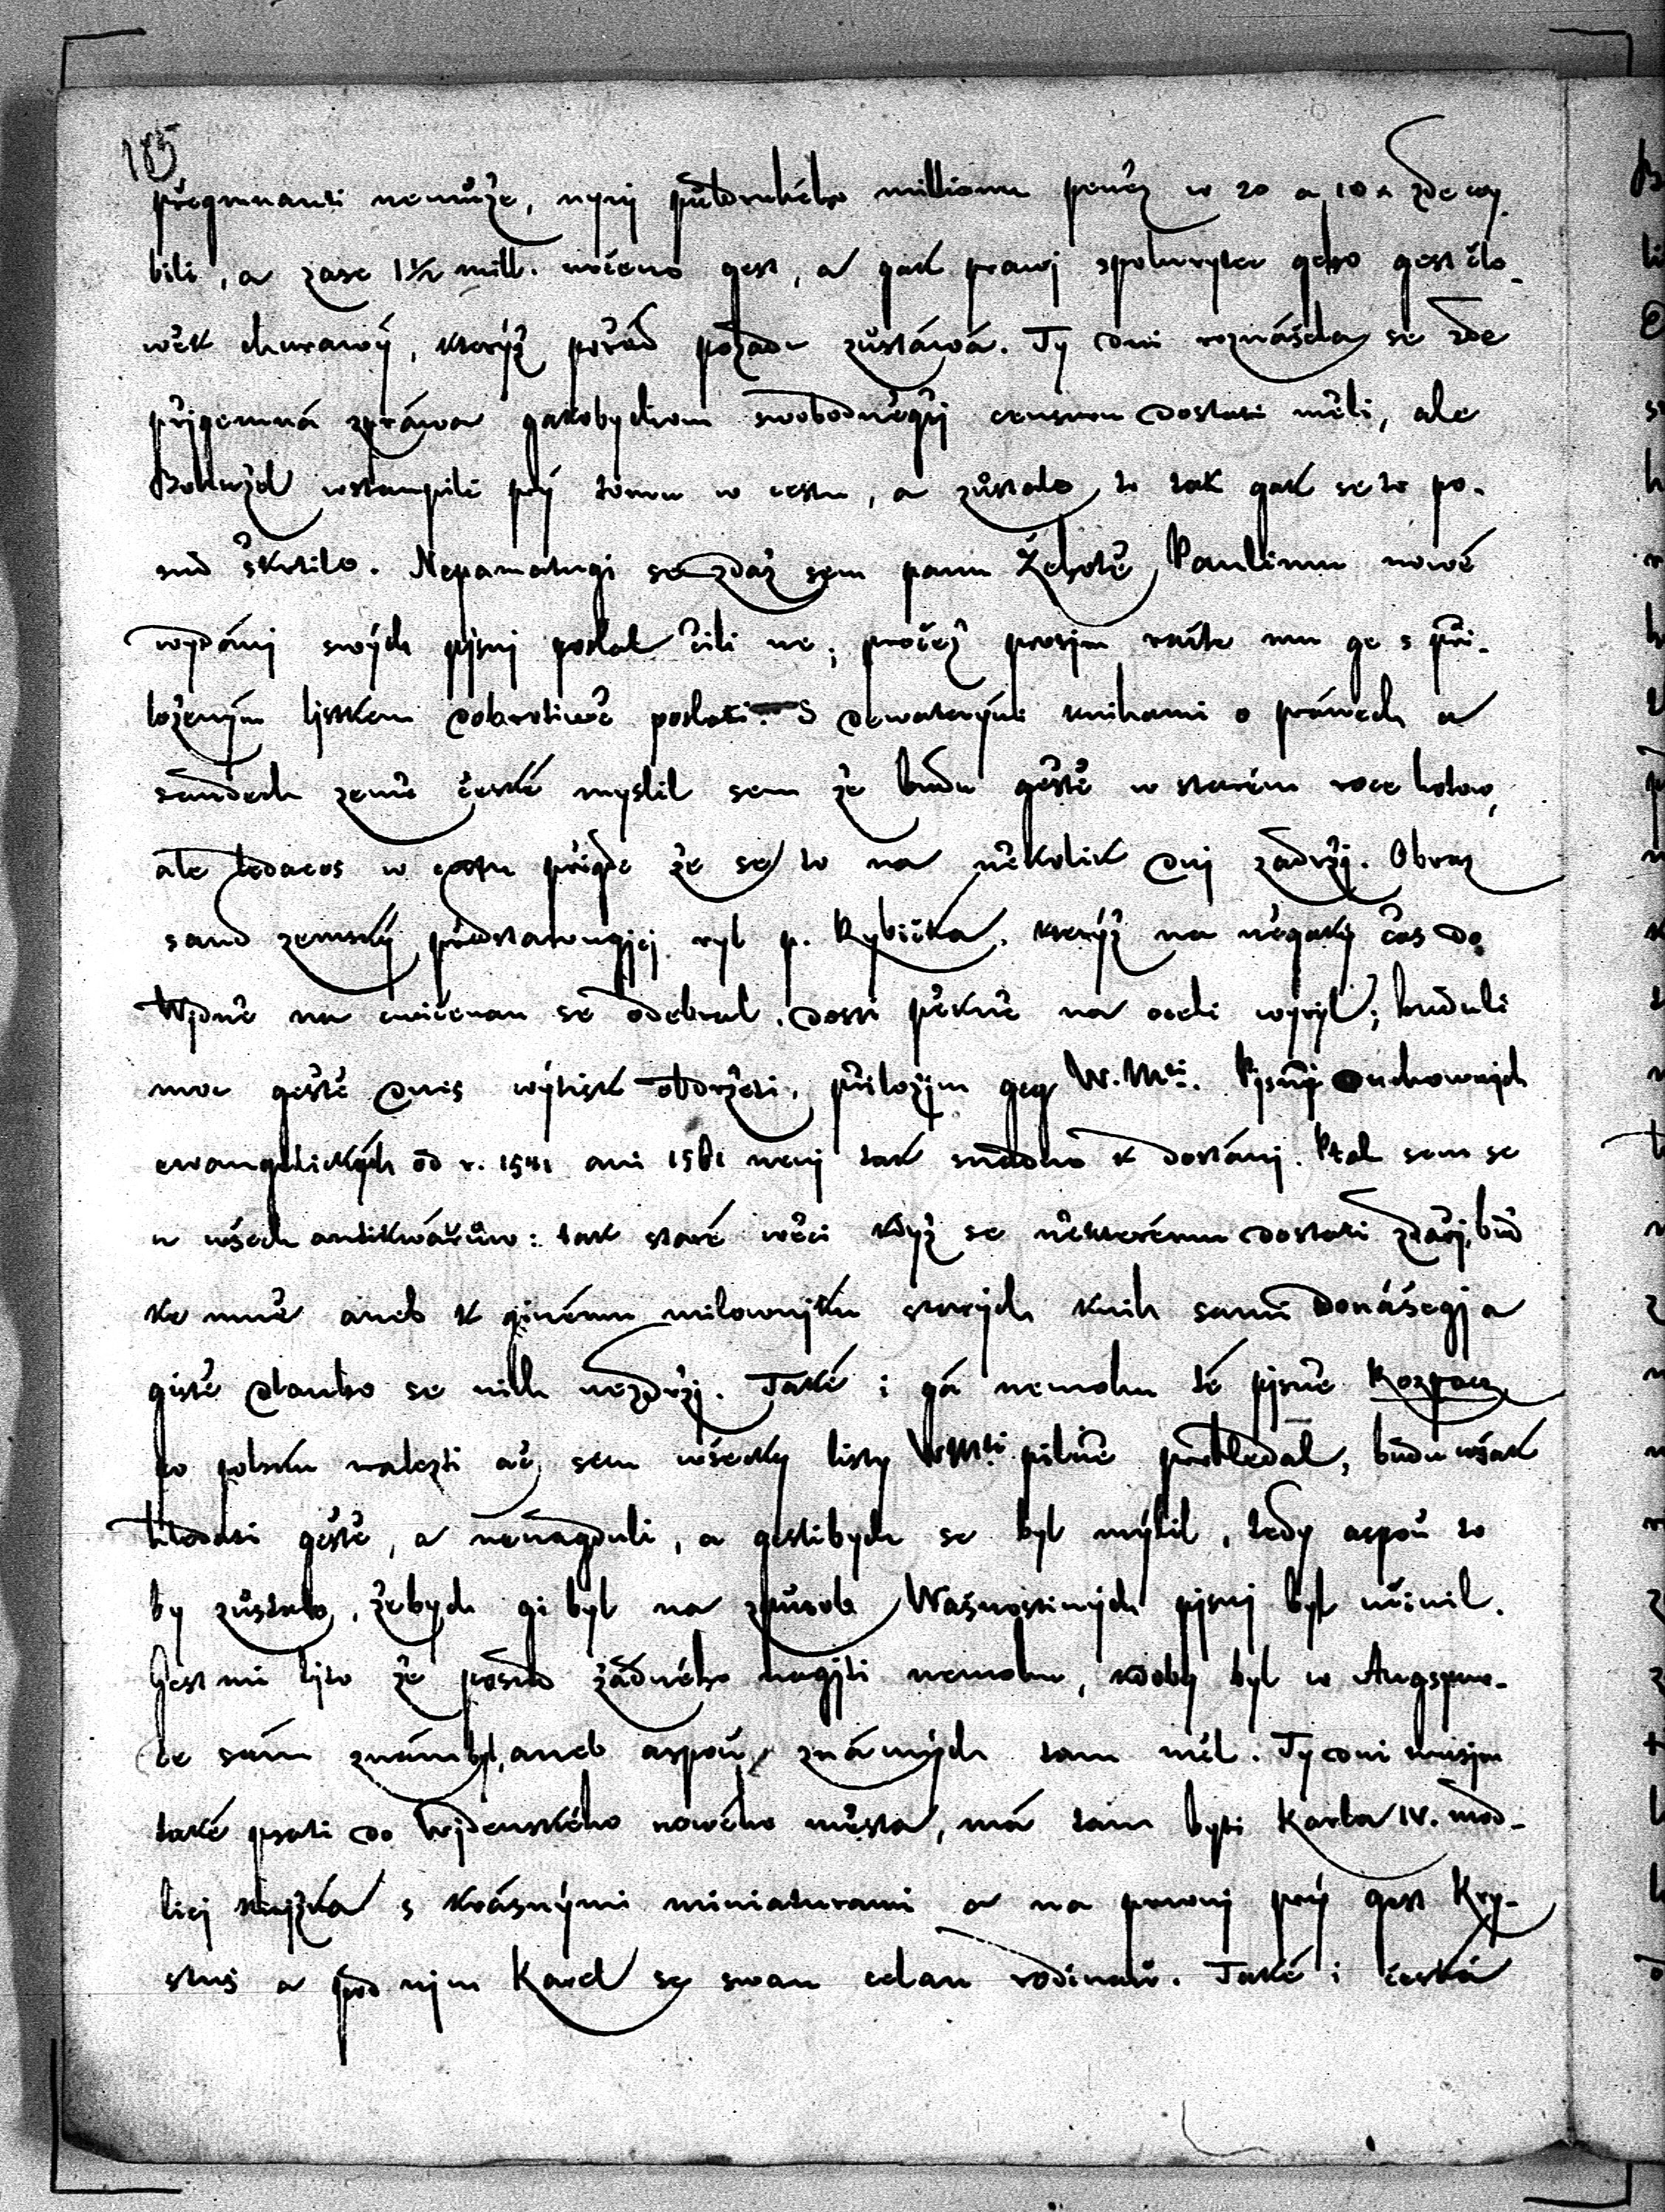 185
přegmnauti nemůže, nynj půldruhého millionu peněz w 20 a 10 x zde wy-
bili, a zase 1½ mill. určeno gest, a gak prawj spolurytec geho gest člo-
wěk churawý, kterýž pořád pozadu zůstáwá. Ty dni roznášela se zde
přjgemná zpráwa gakobychom swobodněgšj censuru dostati měli, ale
Bohužel wstaupilé prý tomu w cestu, a zůstalo to tak gak se to po-
sud škrtilo. Nepamatugi se zdaž sem panu Žehotě Paulimu nowé
wydánj swých pjsnj poslal čili ne; pročež prosjm račte mu ge s při-
loženým ljstkem dobrotiwě poslati. S dewaterými knihami o práwech a
saudech země české myslil sem že budu gěště w starém roce hotow,
ale ledacos w cestu přigde že se to na několik dnj zadržj. Obraz
saud zemský představugjcj ryl p. Rybička, kterýž na něgaký čas do
Wjdně na cwičenau se odebral, dosti pěkně na oceli wyryl; buduli
moc gěště dnes wýtisk obdržeti, přiložjm geg W. Mti. Pjsnj duchownjch
ewangelických od r. 1541 ani 1581 nenj tak snadno k dostánj. Ptal sem se
u wšech antikwářůw: tak staré wěci když se některému dostati zdařj, buď
ke mně aneb k ginému milownjku starých knih sami donášegj a
gistě dlauho se nikdy nezdržj. Také i gá nemohu té pjsně Rozpacz
po polsku nalezti ač sem wšecky listy WMti pilně prohledal, budu wšak
hledati gěště, a nenagduli, a gestibych se byl mýlil, tedy aspoň to
by zůstalo, žebych gi byl na způsob Wašnostiných pjsnj byl učinil.
Gest mi ljto že posud žádného nagjti nemohu, kdoby byl w Augspur-
ce sám znám byl, aneb aspoň známých tam měl. Ty dni musjm
také psati do Wjdenského nowého města, má tam byti Karla IV. mod-
licj knjžka s krásnými miniaturami a na prwnj prý gest Kry-
stus a pod njm Karel se swau celau rodinau. Také i česká